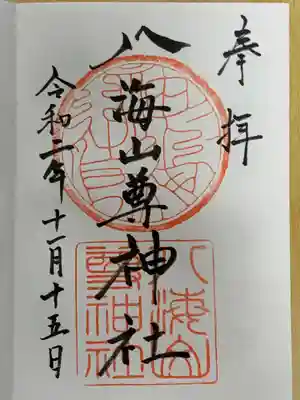 奉拝
八海山尊神社
令和二年十一月十五日
八海山
尊神社